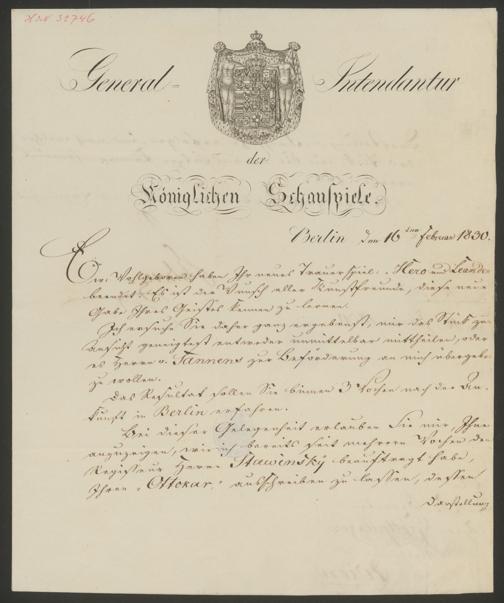 H.I.N. 32746
General-Intendantur
der
Königlichen Schauspiele.
Berlin den 16ten Februar 1830.
Ew. Wohlgeboren haben Ihr neues Trauerspiel: „Hero und Leander“
beendet. Es ist der Wunsch aller Kunstfreunde, diese neue
Gabe Ihres Geistes kennen zu lernen.
Ich ersuche Sie daher ganz ergebenst, mir das Stück zur
Ansicht geneigtest entweder unmittelbar mittheilen, oder
es Herrn v. zur Beförderung an mich übergeben
zu wollen.
Das Resultat sollen Sie binnen 3 Wochen nach der An-
kunft in Berlin erfahren.
Bei dieser Gelegenheit erlauben Sie mir, Ihnen
anzuzeigen, wie ich bereits seit mehreren Wochen den
Regisseur Herrn Stawinsky beauftragt habe,
Ihren „Ottokar“ ausschreiben zu lassen, dessen
Darstellung